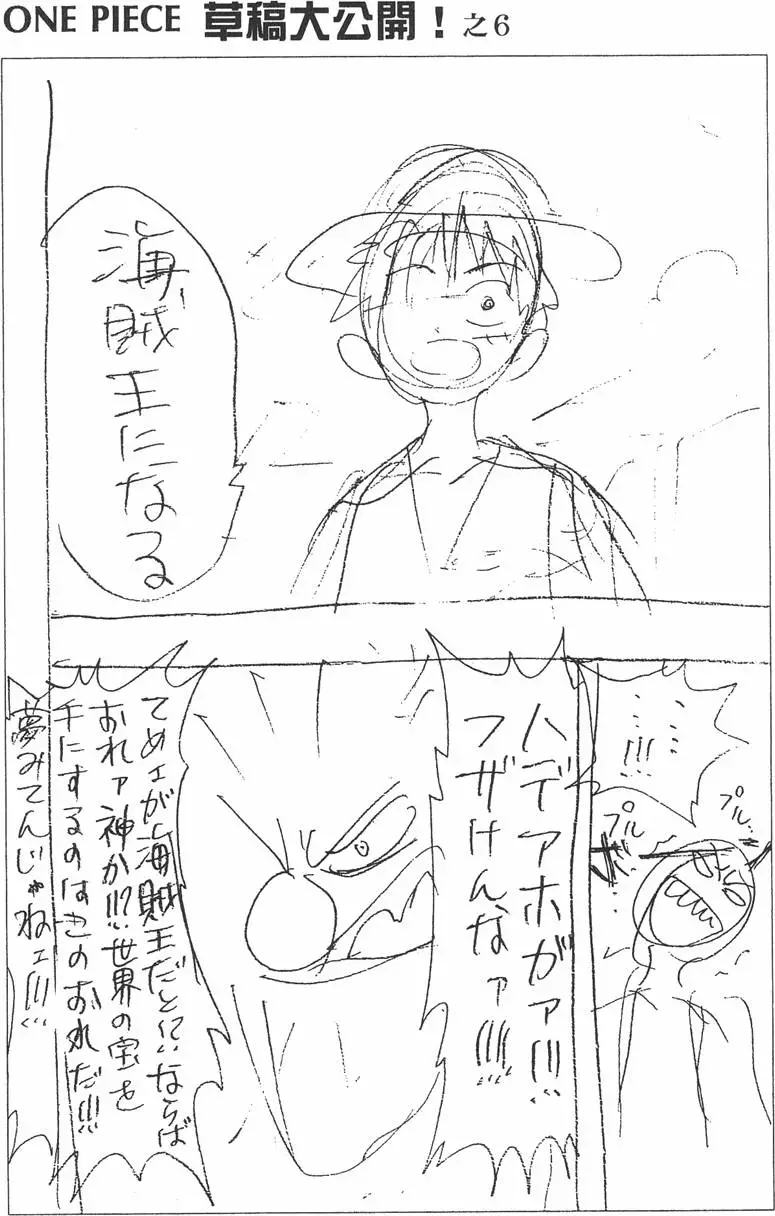 ONE PIECE 草稿大公開！之6
海賊
王になる
……!!!
プル
プル…
ハデアホがァ!!!
フザけんなァ!!!!!
てめェが海賊王だと!?ならば
おれァ神か!!?世界の宝を
手にするのはこのおれだ!!!
夢みてんじゃねェ!!!